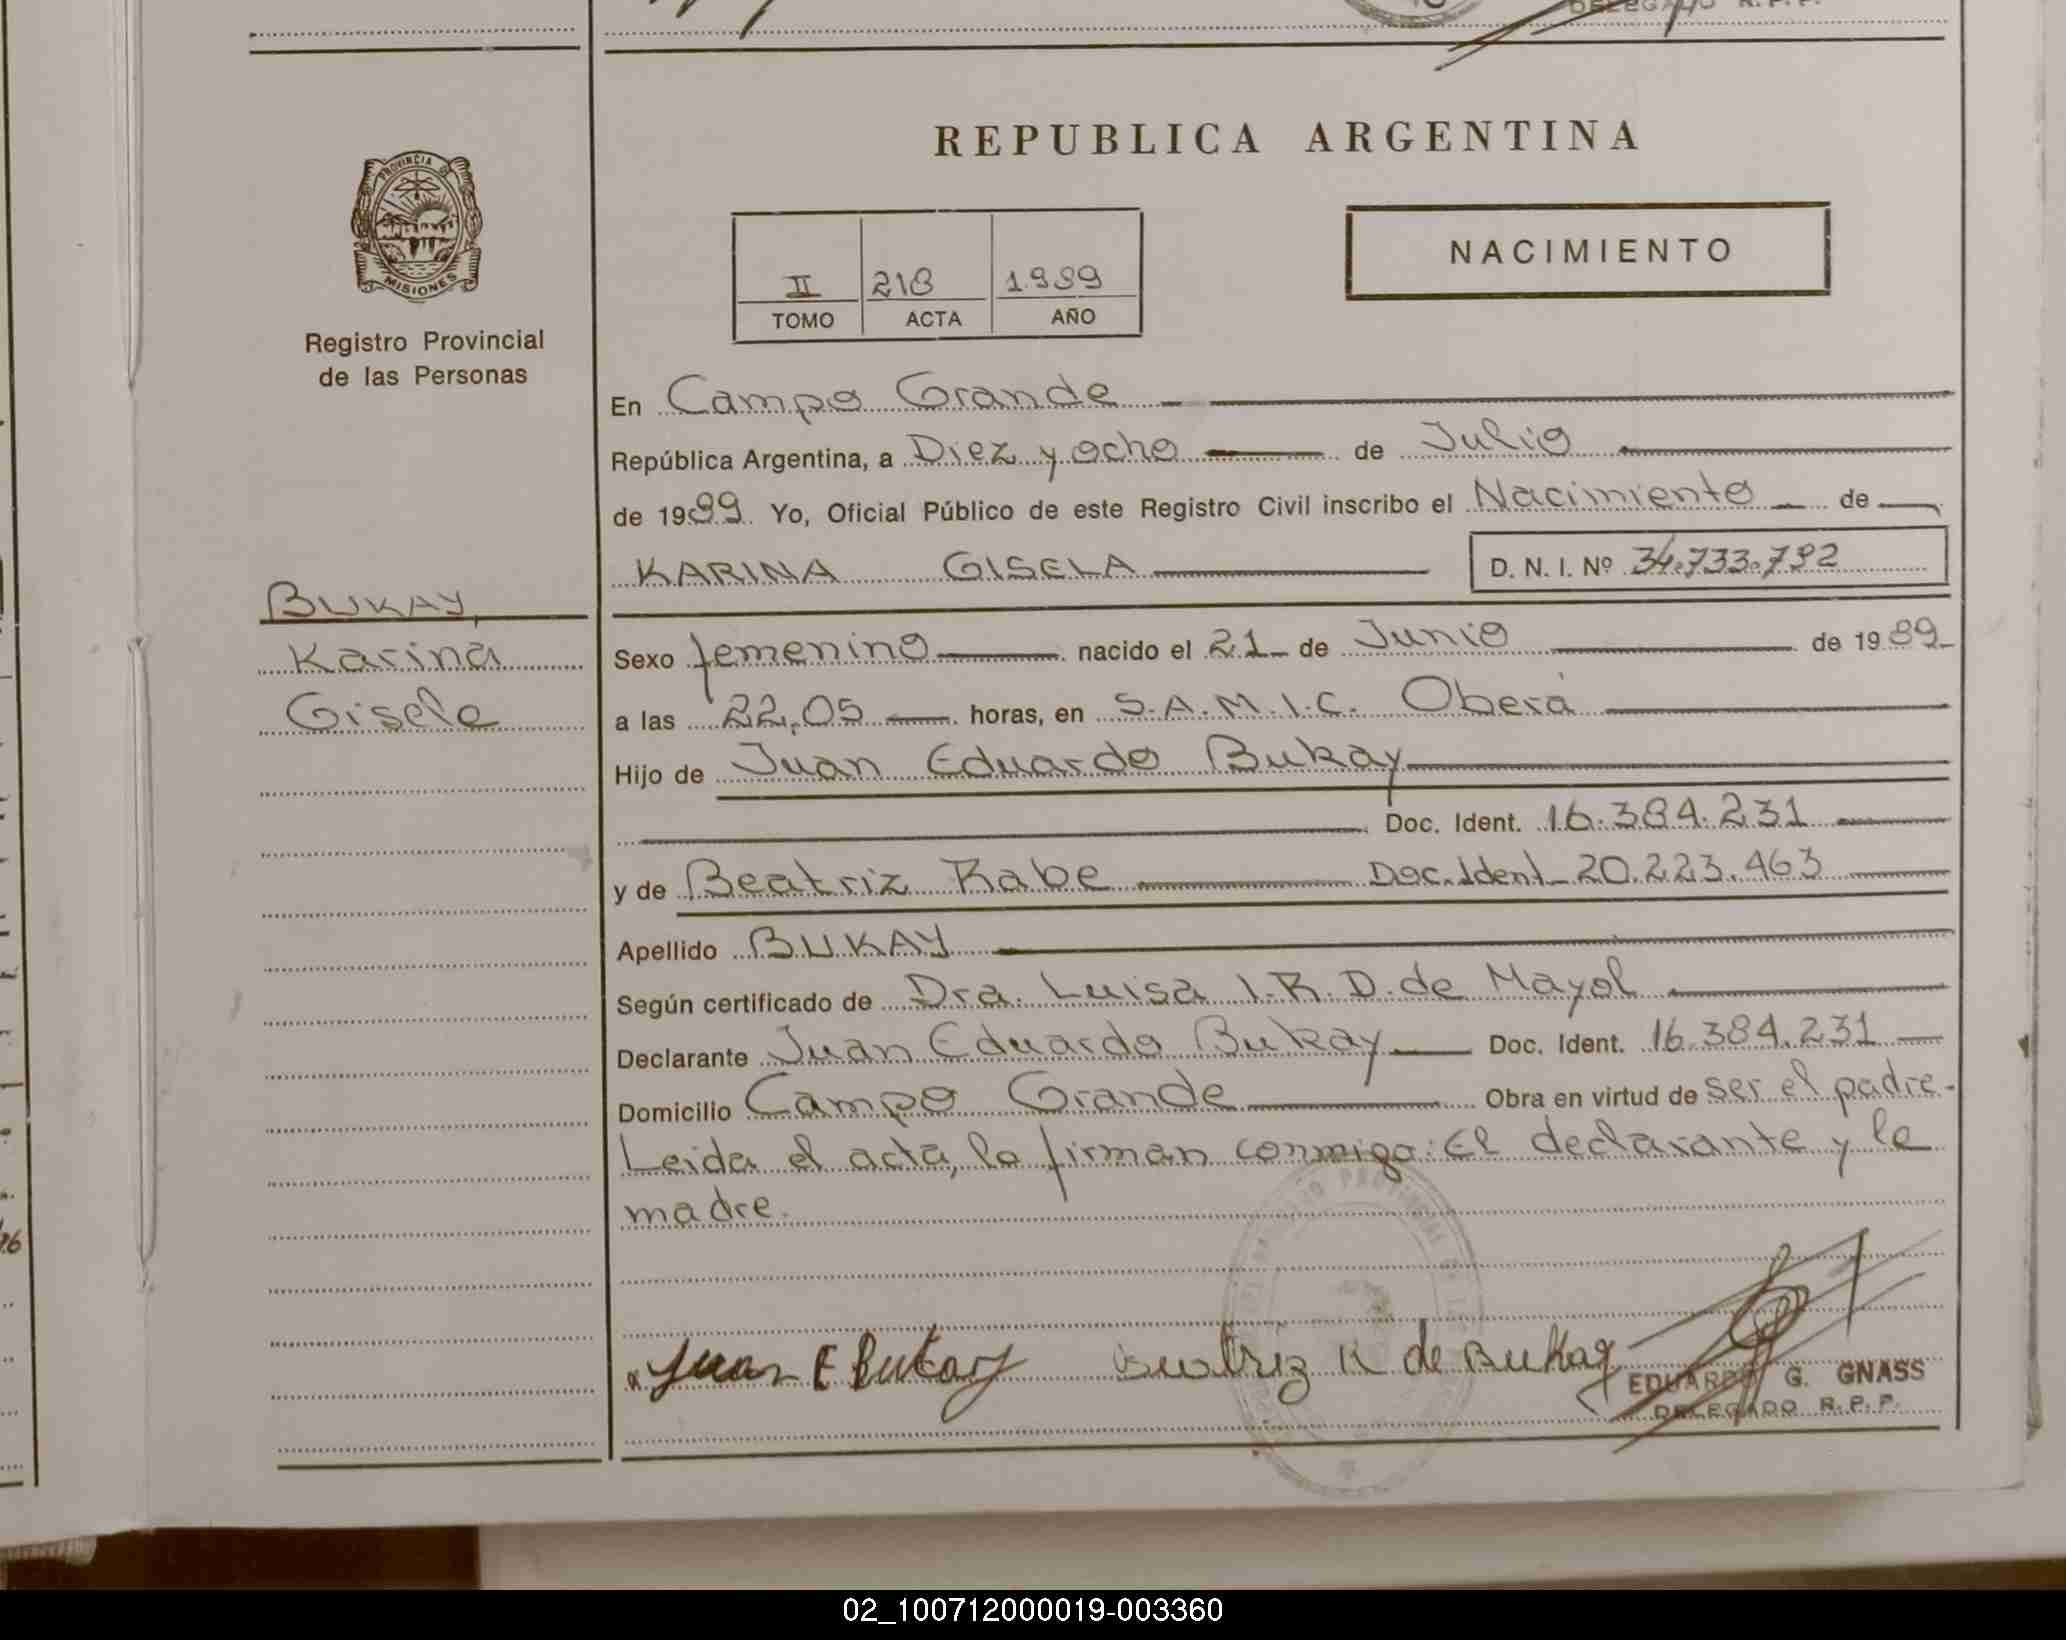 REPUBLICA ARGENTINA
PROVINCIA
MISIONES
Registro Provincial
de las Personas
NACIMIENTO
II 218 1.989
TOMO ACTA AÑO
En Campo Grande
República Argentina, a Diez y ocho de Julio
de 1989. Yo, Oficial Público de este Registro Civil inscribo el Nacimiento de
KARINA GISELA D. N. I. Nº 34.733.792
BUKAY,
Karina
Gisela
Sexo femenino nacido el 21 de Junio de 1989
a las 22,05 horas, en S.A.M.I.C. Oberá
Hijo de Juan Eduardo Bukay
Doc. Ident. 16.384.231
y de Beatriz Rabe Doc. Ident 20.223.463
Apellido BUKAY
Según certificado de Dra. Luisa I.R.D. de Mayol
Declarante Juan Eduardo Bukay Doc. Ident. 16.384.231
Domicilio Campo Grande Obra en virtud de ser el padre.
Leida el acta, la firman conmigo: El declarante y la
madre.
Juan E Bukay Beatriz R de Bukay
EDUARDO G. GNASS
DELEGADO R. P. P.
02_100712000019-003360